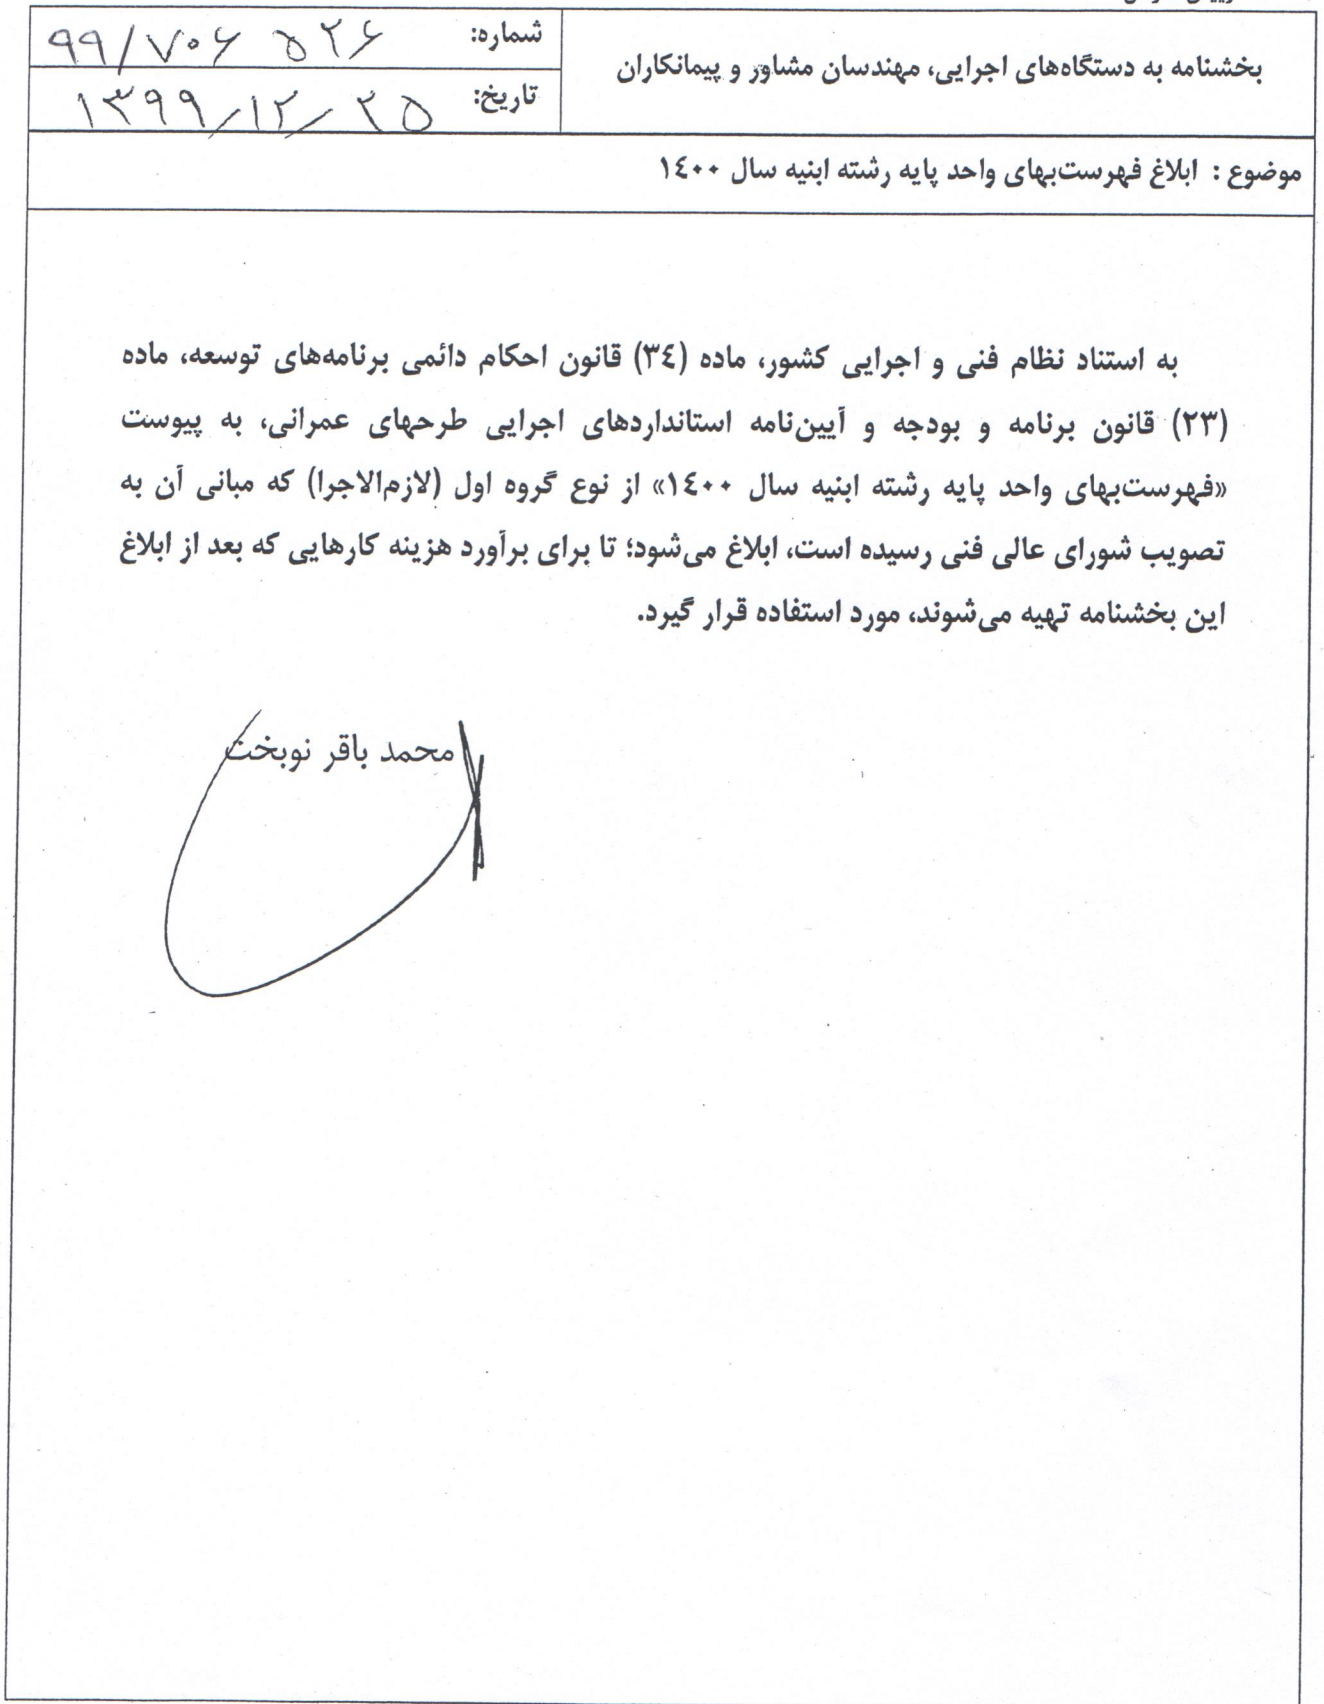 شماره: ۹۹/۷۰۶ ۵۲۶
تاریخ: ۱۳۹۹/۱۲/۲۵
بخشنامه به دستگاه‌های اجرایی، مهندسان مشاور و پیمانکاران
موضوع : ابلاغ فهرست‌بهای واحد پایه رشته ابنیه سال ۱۴۰۰
به استناد نظام فنی و اجرایی کشور، ماده (۳۴) قانون احکام دائمی برنامه‌های توسعه، ماده
(۲۳) قانون برنامه و بودجه و آیین‌نامه استانداردهای اجرایی طرحهای عمرانی، به پیوست
«فهرست‌بهای واحد پایه رشته ابنیه سال ۱۴۰۰» از نوع گروه اول (لازم‌الاجرا) که مبانی آن به
تصویب شورای عالی فنی رسیده است، ابلاغ می‌شود؛ تا برای برآورد هزینه کارهایی که بعد از ابلاغ
این بخشنامه تهیه می‌شوند، مورد استفاده قرار گیرد.
محمد باقر نوبخت